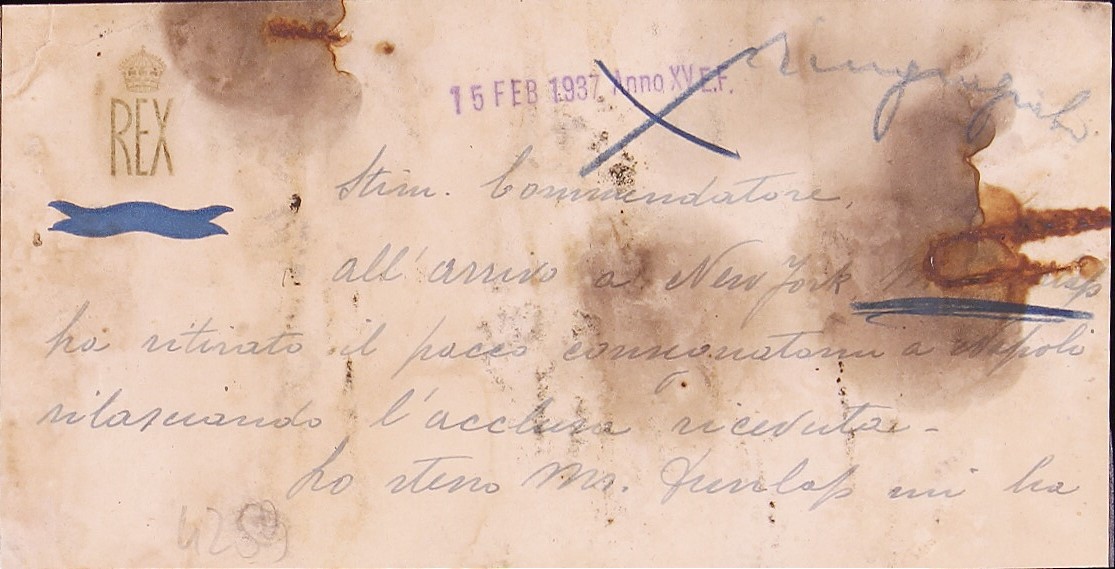 REX
15 FEB 1937 Anno XV E.F.
Stim. Commendatore,
all'arrivo a New York
ha ritirato il pacco consegnatomi a Napoli
rilasciando l'acclusa ricevuta -
Lo stesso Mr. Dunlap mi ha